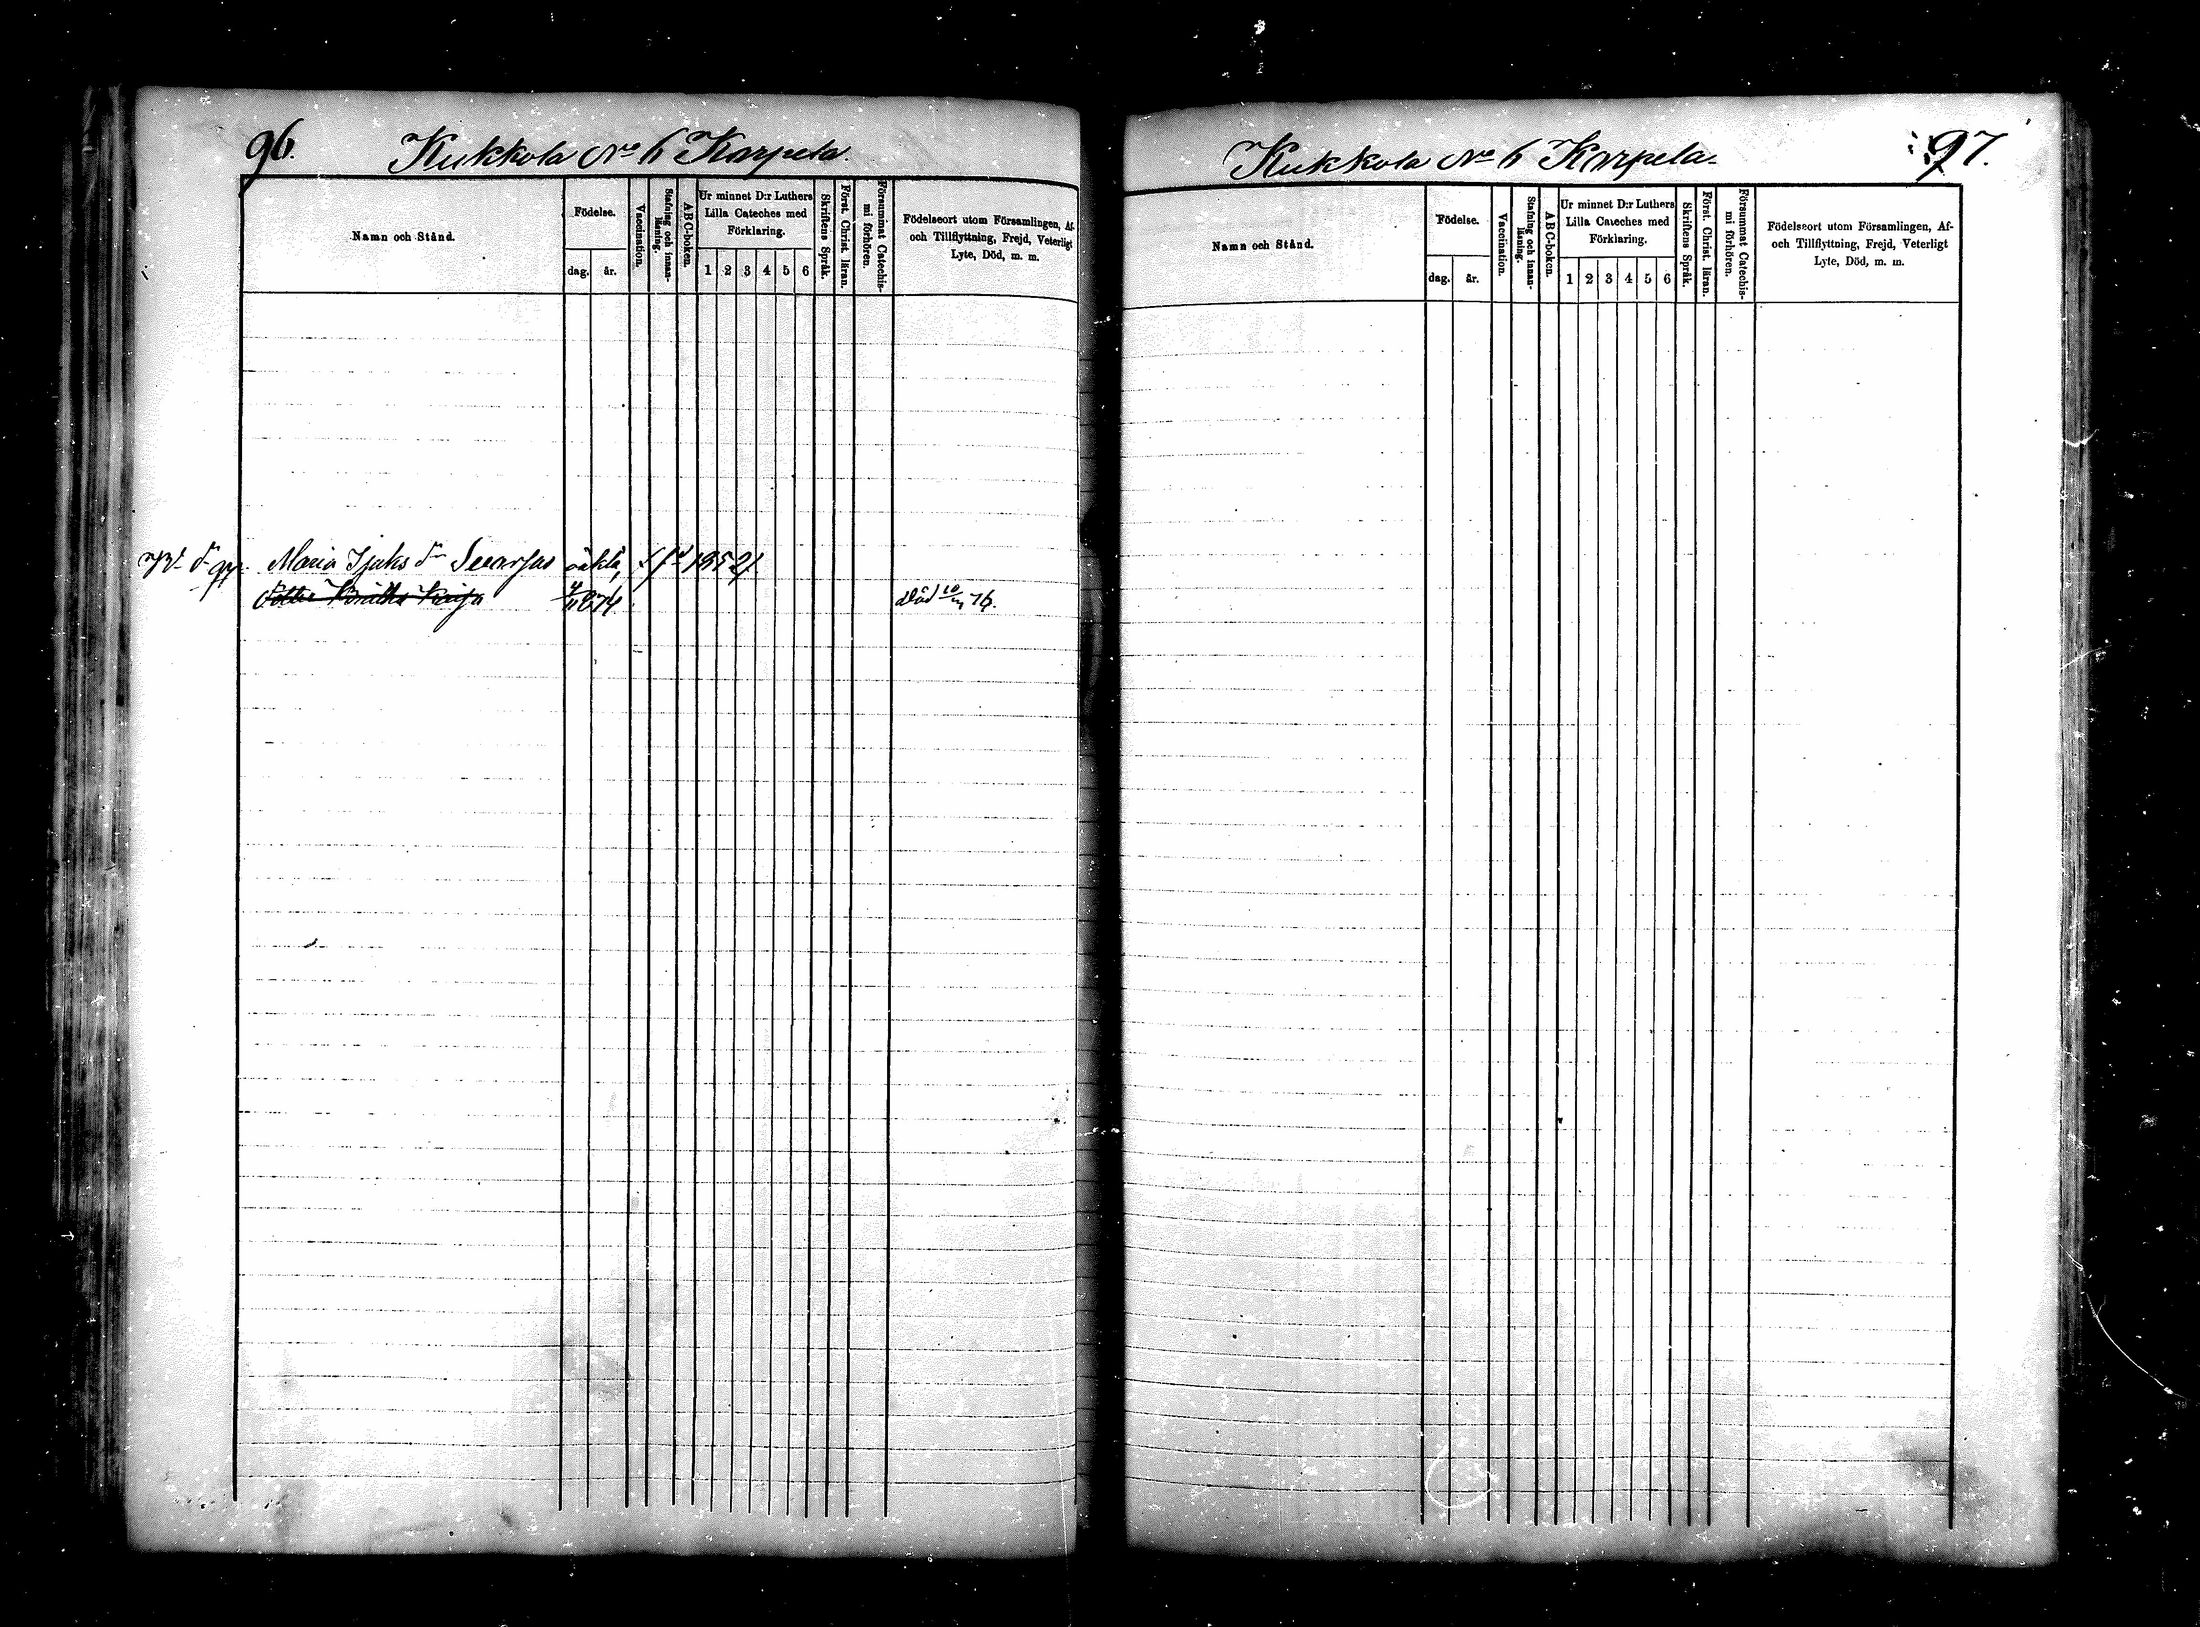 96.
Kukkola No 6 Karpela.
Namn och Stånd.
Födelse.
dag.
år.
Vaccination.
Stafning och innan-
läsning.
ABC-boken.
Ur minnet D:r Luthers
Lilla Cateches med
Förklaring.
1 2 3 4 5 6
Skriftens Språk.
Först. Christ. läran.
Försummat Catechis-
mi förhören.
Födelseort utom Församlingen, Af-
och Tillflyttning, Frejd, Veterligt
Lyte, Död, m. m.
Maria
oäkta,
Kaisa
1874
Död 76.
Kukkola No 6 Karpela.
97.
Namn och Stånd.
Födelse.
dag.
år.
Vaccination.
Stafning och innan-
läsning.
ABC-boken.
Ur minnet D:r Luthers
Lilla Cateches med
Förklaring.
1 2 3 4 5 6
Skriftens Språk.
Först. Christ. läran.
Försummat Catechis-
mi förhören.
Födelseort utom Församlingen, Af-
och Tillflyttning, Frejd, Veterligt
Lyte, Död, m. m.